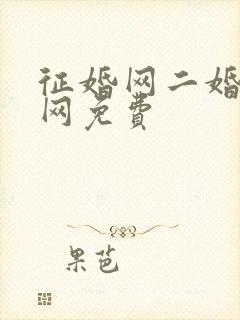 征婚网二婚
网免费
果芭